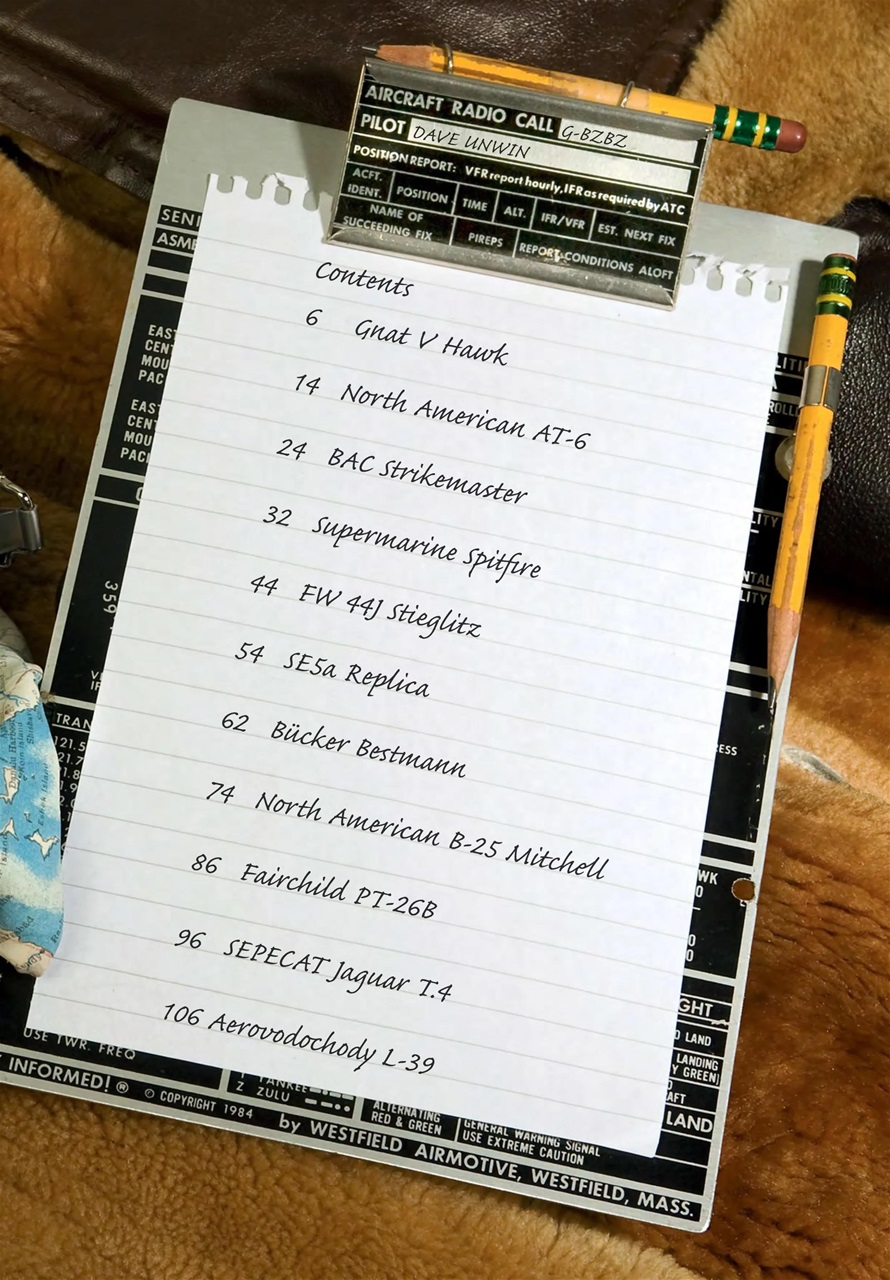 AIRCRAFT RADIO CALL G-BZBZ
PILOT DAVE UNWIN
POSITION REPORT: VFR report hourly, IFR as required by ATC
ACFT. IDENT. POSITION TIME ALT. IFR/VFR EST. NEXT FIX
NAME OF SUCCEEDING FIX PIREPS REPORT-CONDITIONS ALOFT
Contents
6 Gnat V Hawk
14 North American AT-6
24 BAC Strikemaster
32 Supermarine Spitfire
44 FW 44J Stieglitz
54 SE5a Replica
62 Bücker Bestmann
74 North American B-25 Mitchell
86 Fairchild PT-26B
96 SEPECAT Jaguar T.4
106 Aerovodochody L-39
USE TWR. FREQ
INFORMED! ®
© COPYRIGHT 1984
by WESTFIELD AIRMOTIVE, WESTFIELD, MASS.
YANKEE
Z ZULU
ALTERNATING
RED & GREEN
GENERAL WARNING SIGNAL
USE EXTREME CAUTION
LAND
LAND
LANDING
GREEN)
359